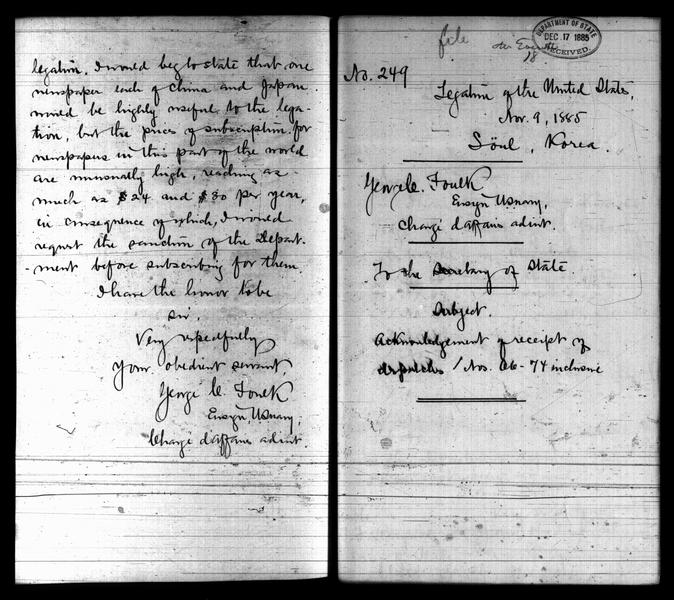 legation. I would beg to state that one
newspaper each of China and Japan
would be highly useful to the lega-
tion, but the prices of subscription for
newspapers in this part of the world
are unusually high, reaching as
much as $24 and $30 per year,
in consequence of which, I would
request the sanction of the Depart-
-ment before subscribing for them.
I have the honor to be
Sir,
Very respectfully
Your obedient servant,
George C. Foulk
Ensign, U.S. navy,
Chargé d'affaires ad int.
file
DEPARTMENT OF STATE
DEC 17 1885
RECEIVED.
18
No. 249
Legation of the United States,
Nov. 9, 1885
Söul, Korea.
George C. Foulk
Ensign U.S. navy,
Chargé d'affaires ad int.
To the Secretary of State
Subject.
Acknowledgement of receipt of
dispatches / Nos. 66-74 inclusive